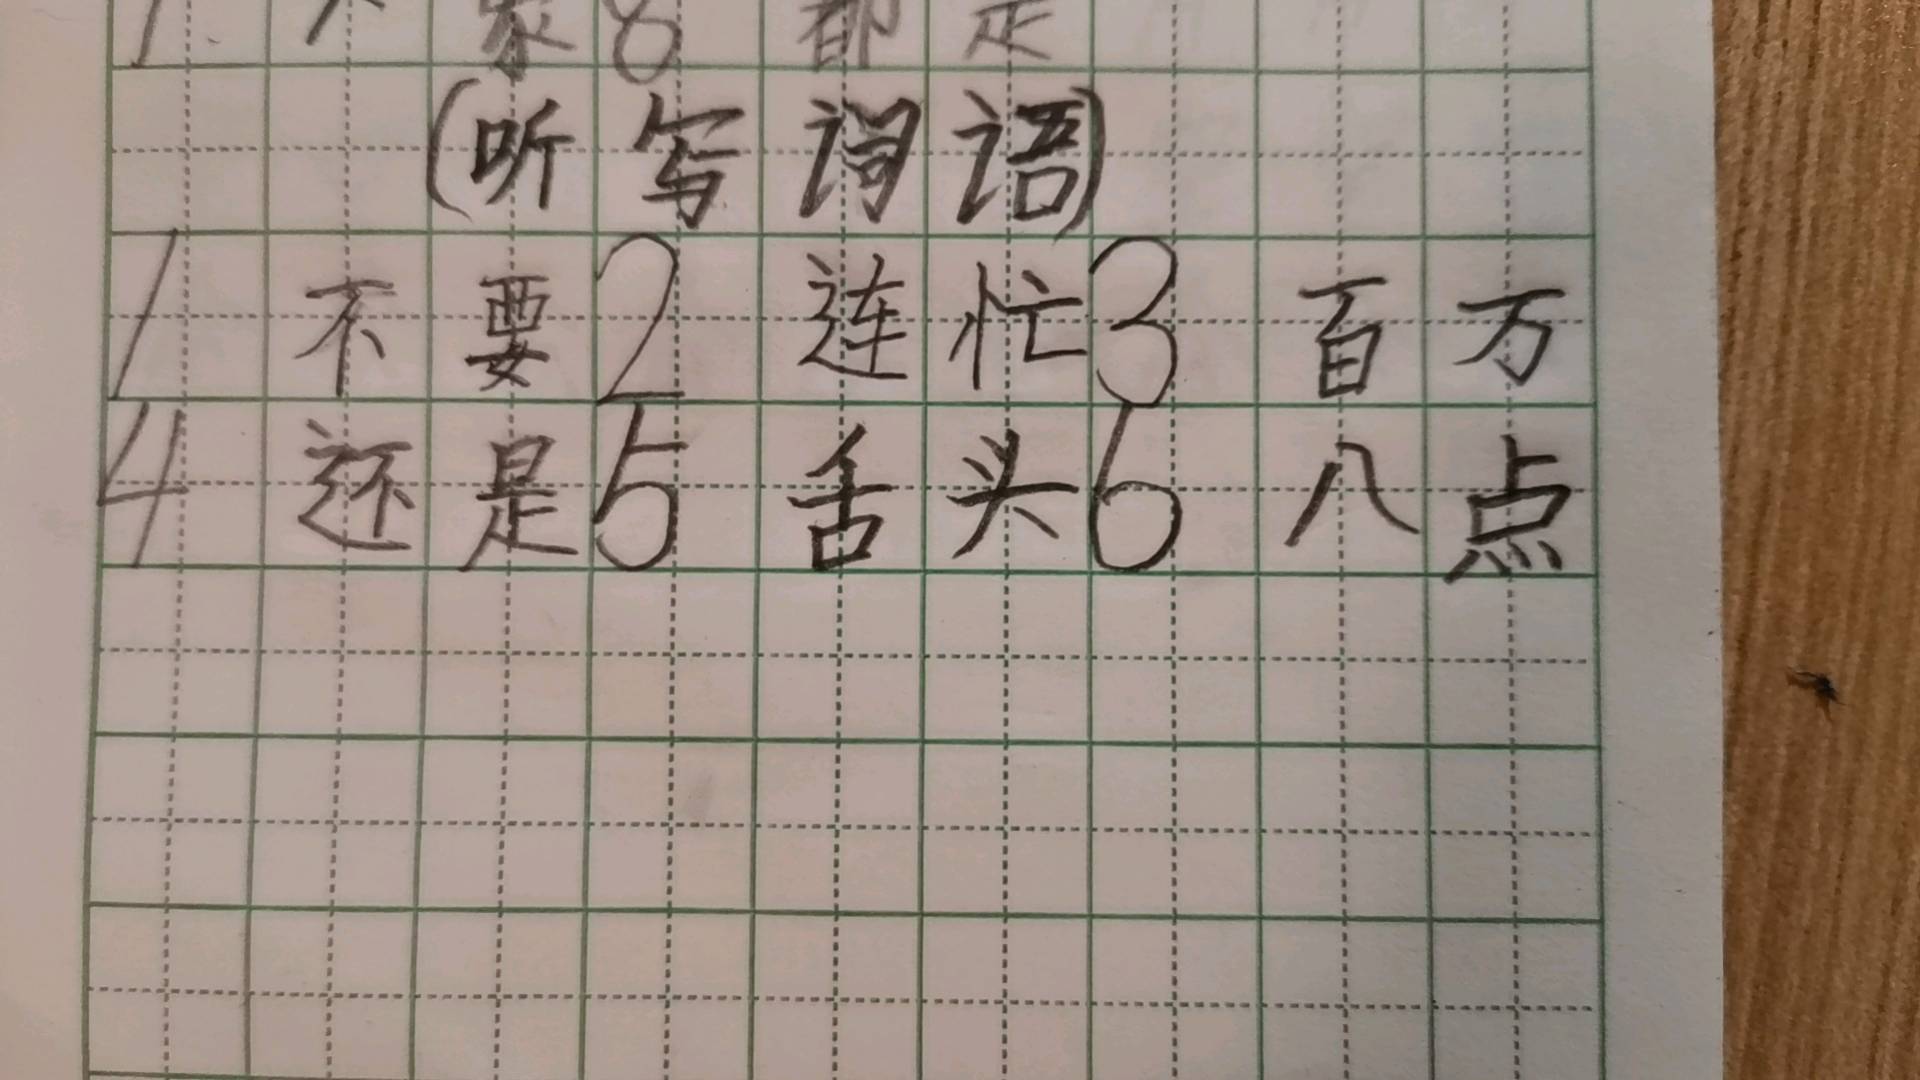 家8 都是
(听写词语)
1 不要2 连忙3 百万
4 还是5 舌头6 八点